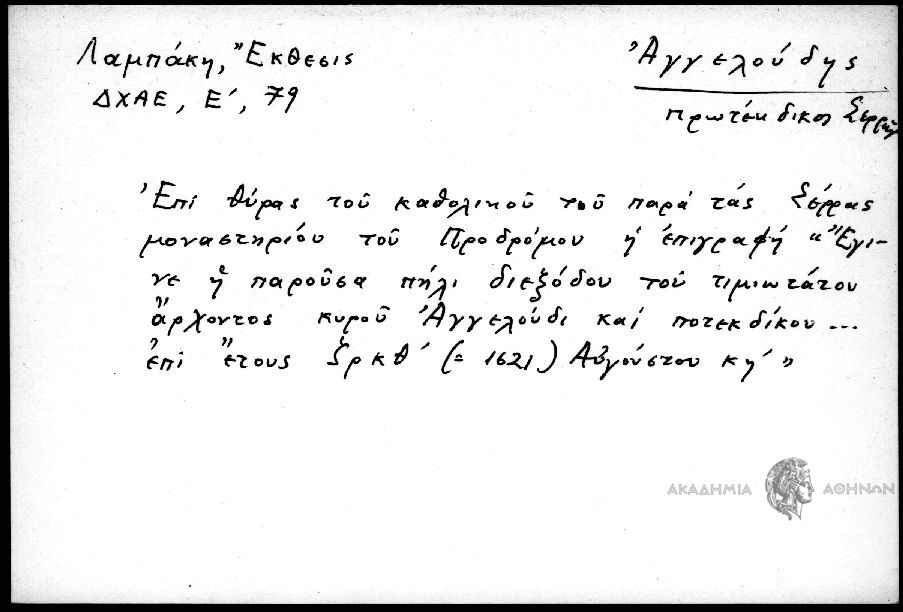 Λαμπάκη, Ἔκθεσις
ΔΧΑΕ, Ε΄, 79
Ἀγγελούδης
πρωτέκδικος Σερρῶν
Ἐπί θύρας τοῦ καθολικοῦ τοῦ παρά τάς Σέρρας
μοναστηρίου τοῦ Προδρόμου ἡ ἐπιγραφή «Ἔγι-
νε ἡ παροῦσα πήλι διεξόδου τοῦ τιμιωτάτου
ἄρχοντος κυροῦ Ἀγγελούδι καί ποτεκδίκου...
ἐπί ἔτους ζρκθ΄ (= 1621) Αὐγούστου κη΄»
ΑΚΑΔΗΜΙΑ ΑΘΗΝΩΝ